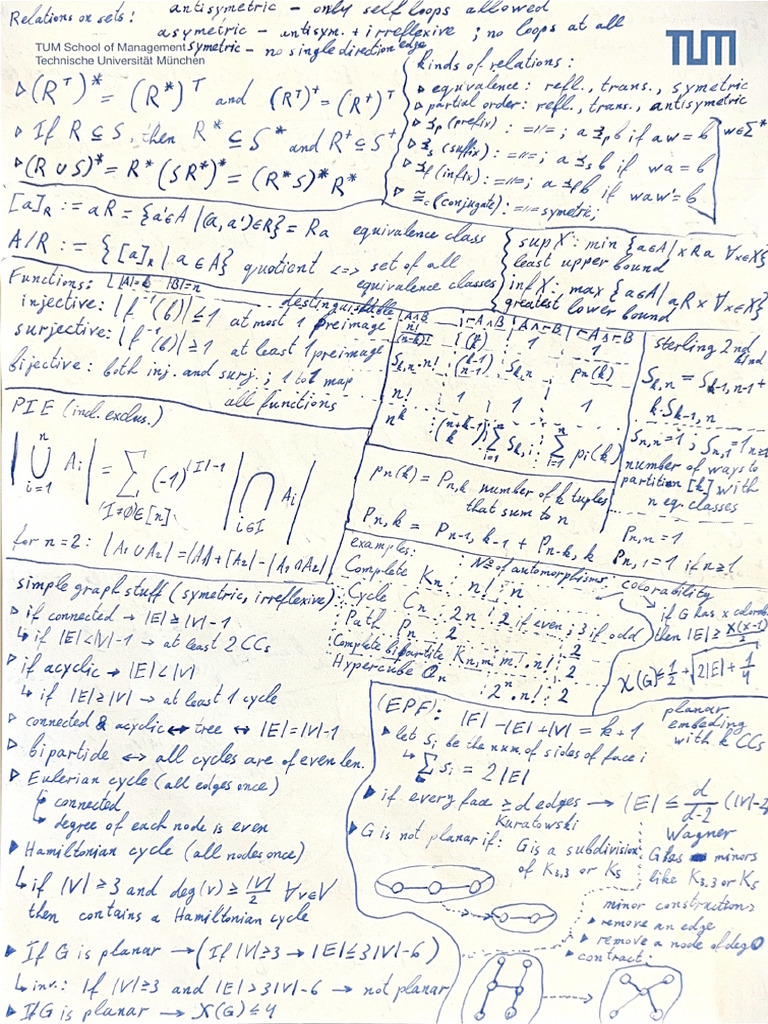 Relations on sets: antisymetric - only self loops allowed
asymetric - antisym. + irreflexive ; no loops at all
symetric - no single direction edge
TUM School of Management
Technische Universität München
TUM
▹(Rᵀ)* = (R*)ᵀ and (Rᵀ)⁺ = (R⁺)ᵀ
▹ If R ⊆ S, then R* ⊆ S* and R⁺ ⊆ S⁺
▹(R ∪ S)* = R* (SR*)* = (R*S)* R*
kinds of relations:
▹ equivalence: refl., trans., symetric
▹ partial order: refl., trans., antisymetric
▹ ⪯p (prefix) : =||= ; a ⪯p b if aw = b
▹ ⪯s (suffix) : =||= ; a ⪯s b if wa = b
▹ ⪯f (infix) : =||= ; a ⪯f b if waw' = b
w∈Σ*
▹ ≅c (conjugate) : =||= symetric;
[a]R := aR = {a'∈A | (a, a')∈R} = Ra equivalence class
A/R := {[a]R | a∈A} quotient <=> set of all
equivalence classes
sup X : min {a∈A | xRa ∀x∈X}
least upper bound
inf X : max {a∈A | aRx ∀x∈X}
greatest lower bound
Functions: |A|=k |B|=n
injective: |f⁻¹(b)| ≤ 1 at most 1 preimage
surjective: |f⁻¹(b)| ≥ 1 at least 1 preimage
bijective: both inj. and surj.; 1 to 1 map
all functions
destinguishable
A∧B ¬A∧B A∧¬B ¬A∧¬B
n!/(n-k)! (n k) 1 1
S k,n · n! (k-1 n-1) S k,n pn(k)
n! 1 1 1
nᵏ (n+k-1 k) Σ i=1 n S k,i Σ i=1 n pi(k)
sterling 2nd kind
S k,n = S k-1,n-1 +
k·S k-1,n
S n,n = 1 ; S n,1 = 1 n≥1
number of ways to
partition [k] with
n eq. classes
PIE (incl. exclus.)
|⋃ i=1 n Ai| = Σ I≠∅∈[n] (-1)^|I|-1 |⋂ i∈I Ai|
for n=2: |A1 ∪ A2| = |A1| + |A2| - |A1 ∩ A2|
pn(k) = P n,k number of k tuples
that sum to n
P n,k = P n-1,k-1 + P n-k,k P n,n = 1
P n,1 = 1 if n≥1
examples: № of automorphisms colorability
Complete Kn : n! : n
Cycle Cn : 2n : 2 if even ; 3 if odd
Path Pn : 2 : 2
Complete bipartite K n,m : m!·n! : 2
Hypercube Qn : 2ⁿ·n! : 2
if G has x colorab
then |E| ≥ x(x-1)/2
χ(G) ≤ 1/2 + √2|E| + 1/4
simple graph stuff (symetric, irreflexive)
▹ if connected → |E| ≥ |V|-1
↳ if |E| < |V|-1 → at least 2 CCs
▹ if acyclic → |E| < |V|
↳ if |E| ≥ |V| → at least 1 cycle
▹ connected & acyclic ↔ tree ↔ |E| = |V|-1
▹ bipartide <-> all cycles are of even len.
▹ Eulerian cycle (all edges once)
↳ connected
↳ degree of each node is even
▹ Hamiltonian cycle (all nodes once)
↳ if |V| ≥ 3 and deg(v) ≥ |V|/2 ∀v∈V
then contains a Hamiltonian cycle
▹ If G is planar → (If |V| ≥ 3 → |E| ≤ 3|V|-6)
↳ inv.: If |V| ≥ 3 and |E| > 3|V|-6 → not planar
▹ If G is planar → χ(G) ≤ 4
(EPF): |F| - |E| + |V| = k+1
planar
embeding
with k CCs
▹ let si be the num of sides of face i
↳ Σ si = 2|E|
▹ if every face ≥ d edges → |E| ≤ d/d-2 (|V|-2
Kuratowski
Wagner
▹ G is not planar if: G is a subdivision
of K3,3 or K5
G has minors
like K3,3 or K5
minor constructions
▹ remove an edge
▹ remove a node of deg 0
▹ contract: